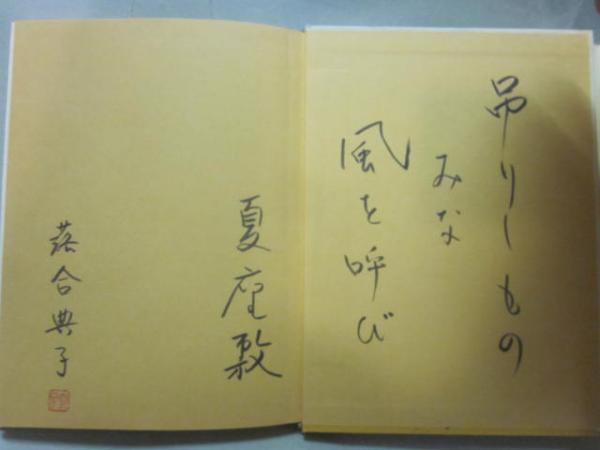 吊りしもの
みな
風を呼び
夏座敷
落合典子